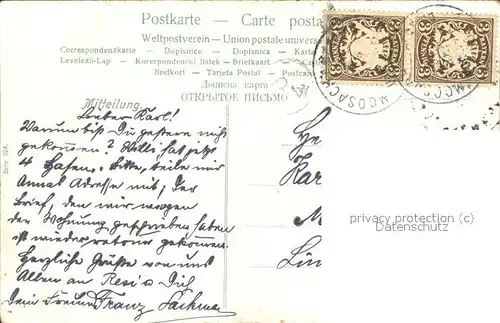 Postkarte – Carte posta
Weltpostverein – Union postale univers
Correspondenzkarte – Dopisnice – Dopisnica – Karta
Levelező-Lap – Korerpondenční listek – Briefkaart
Brefkort – Tarjeta Postal – Postcar
Дописна карта
ОТКРЫТОЕ ПИСЬМО
3 3
MOOSACH
Mitteilung.
Lieber Karl!
Warum bist Du gestern nicht
gekommen?
4 Hasen. Bitte, teile mir
Annas Adresse mit, der
Brief, den wir wegen
der Wohnung geschrieben haben
ist wieder retour gekommen.
Herzliche Grüße von uns
Allen an Resi u Dich
Dein Freund Franz
Serie 824.
He
Kar
M
Lin
privacy protection (c)
Datenschutz